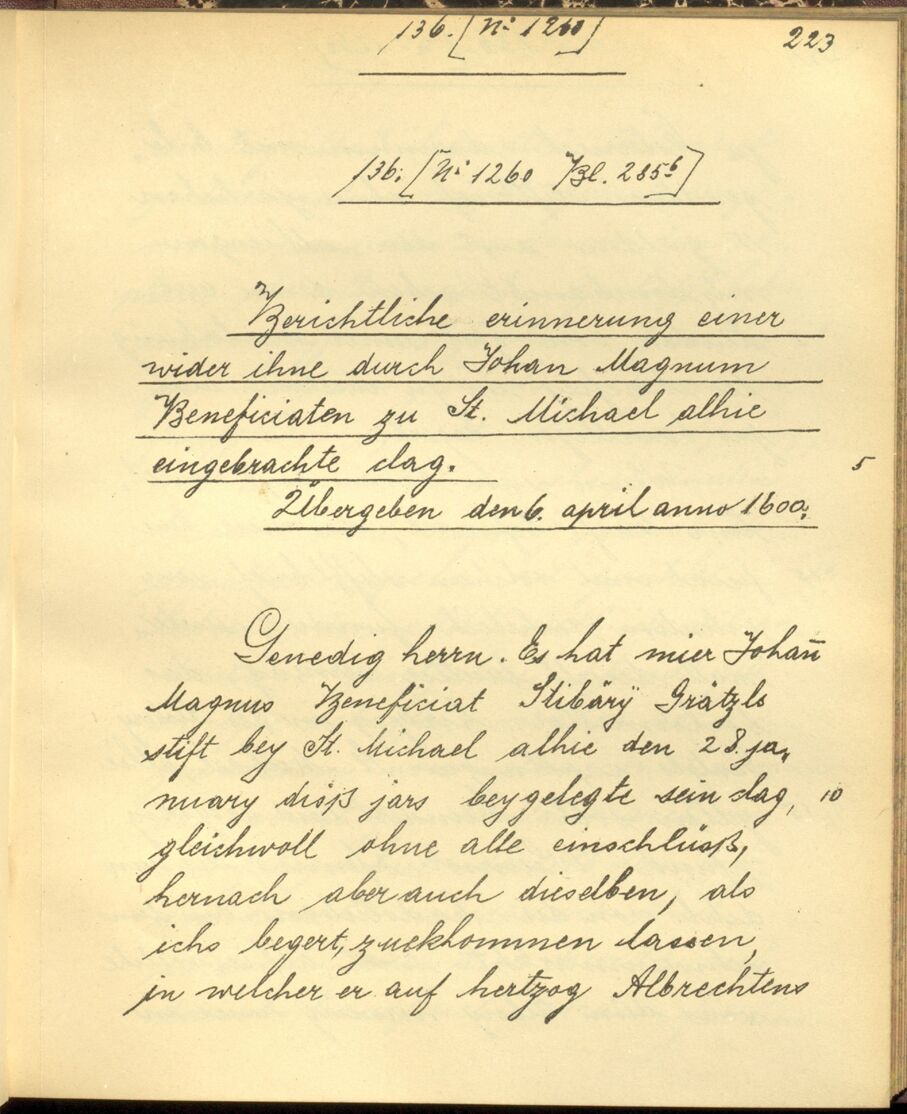 136. [N: 1260]
223
136. [N: 1260 Bl. 285b]
Berichtliche erinnerung einer
wider ihne durch Johan Magnum
Beneficiaten zu St. Michael alhie
eingebrachte clag.
5
Übergeben den 6. april anno 1600.
Genedig herrn. Es hat mier Johan̄
Magnus Beneficiat Stibärÿ Grätzls
stift bey St. Michael alhie den 28. ja,,
nuary diß jars beygelegte sein clag,
10
gleichwoll ohne alle einschlüß,
hernach aber auch dieselben, als
ichs begert, zuekhommen lassen,
in welcher er auf hertzog Albrechtens